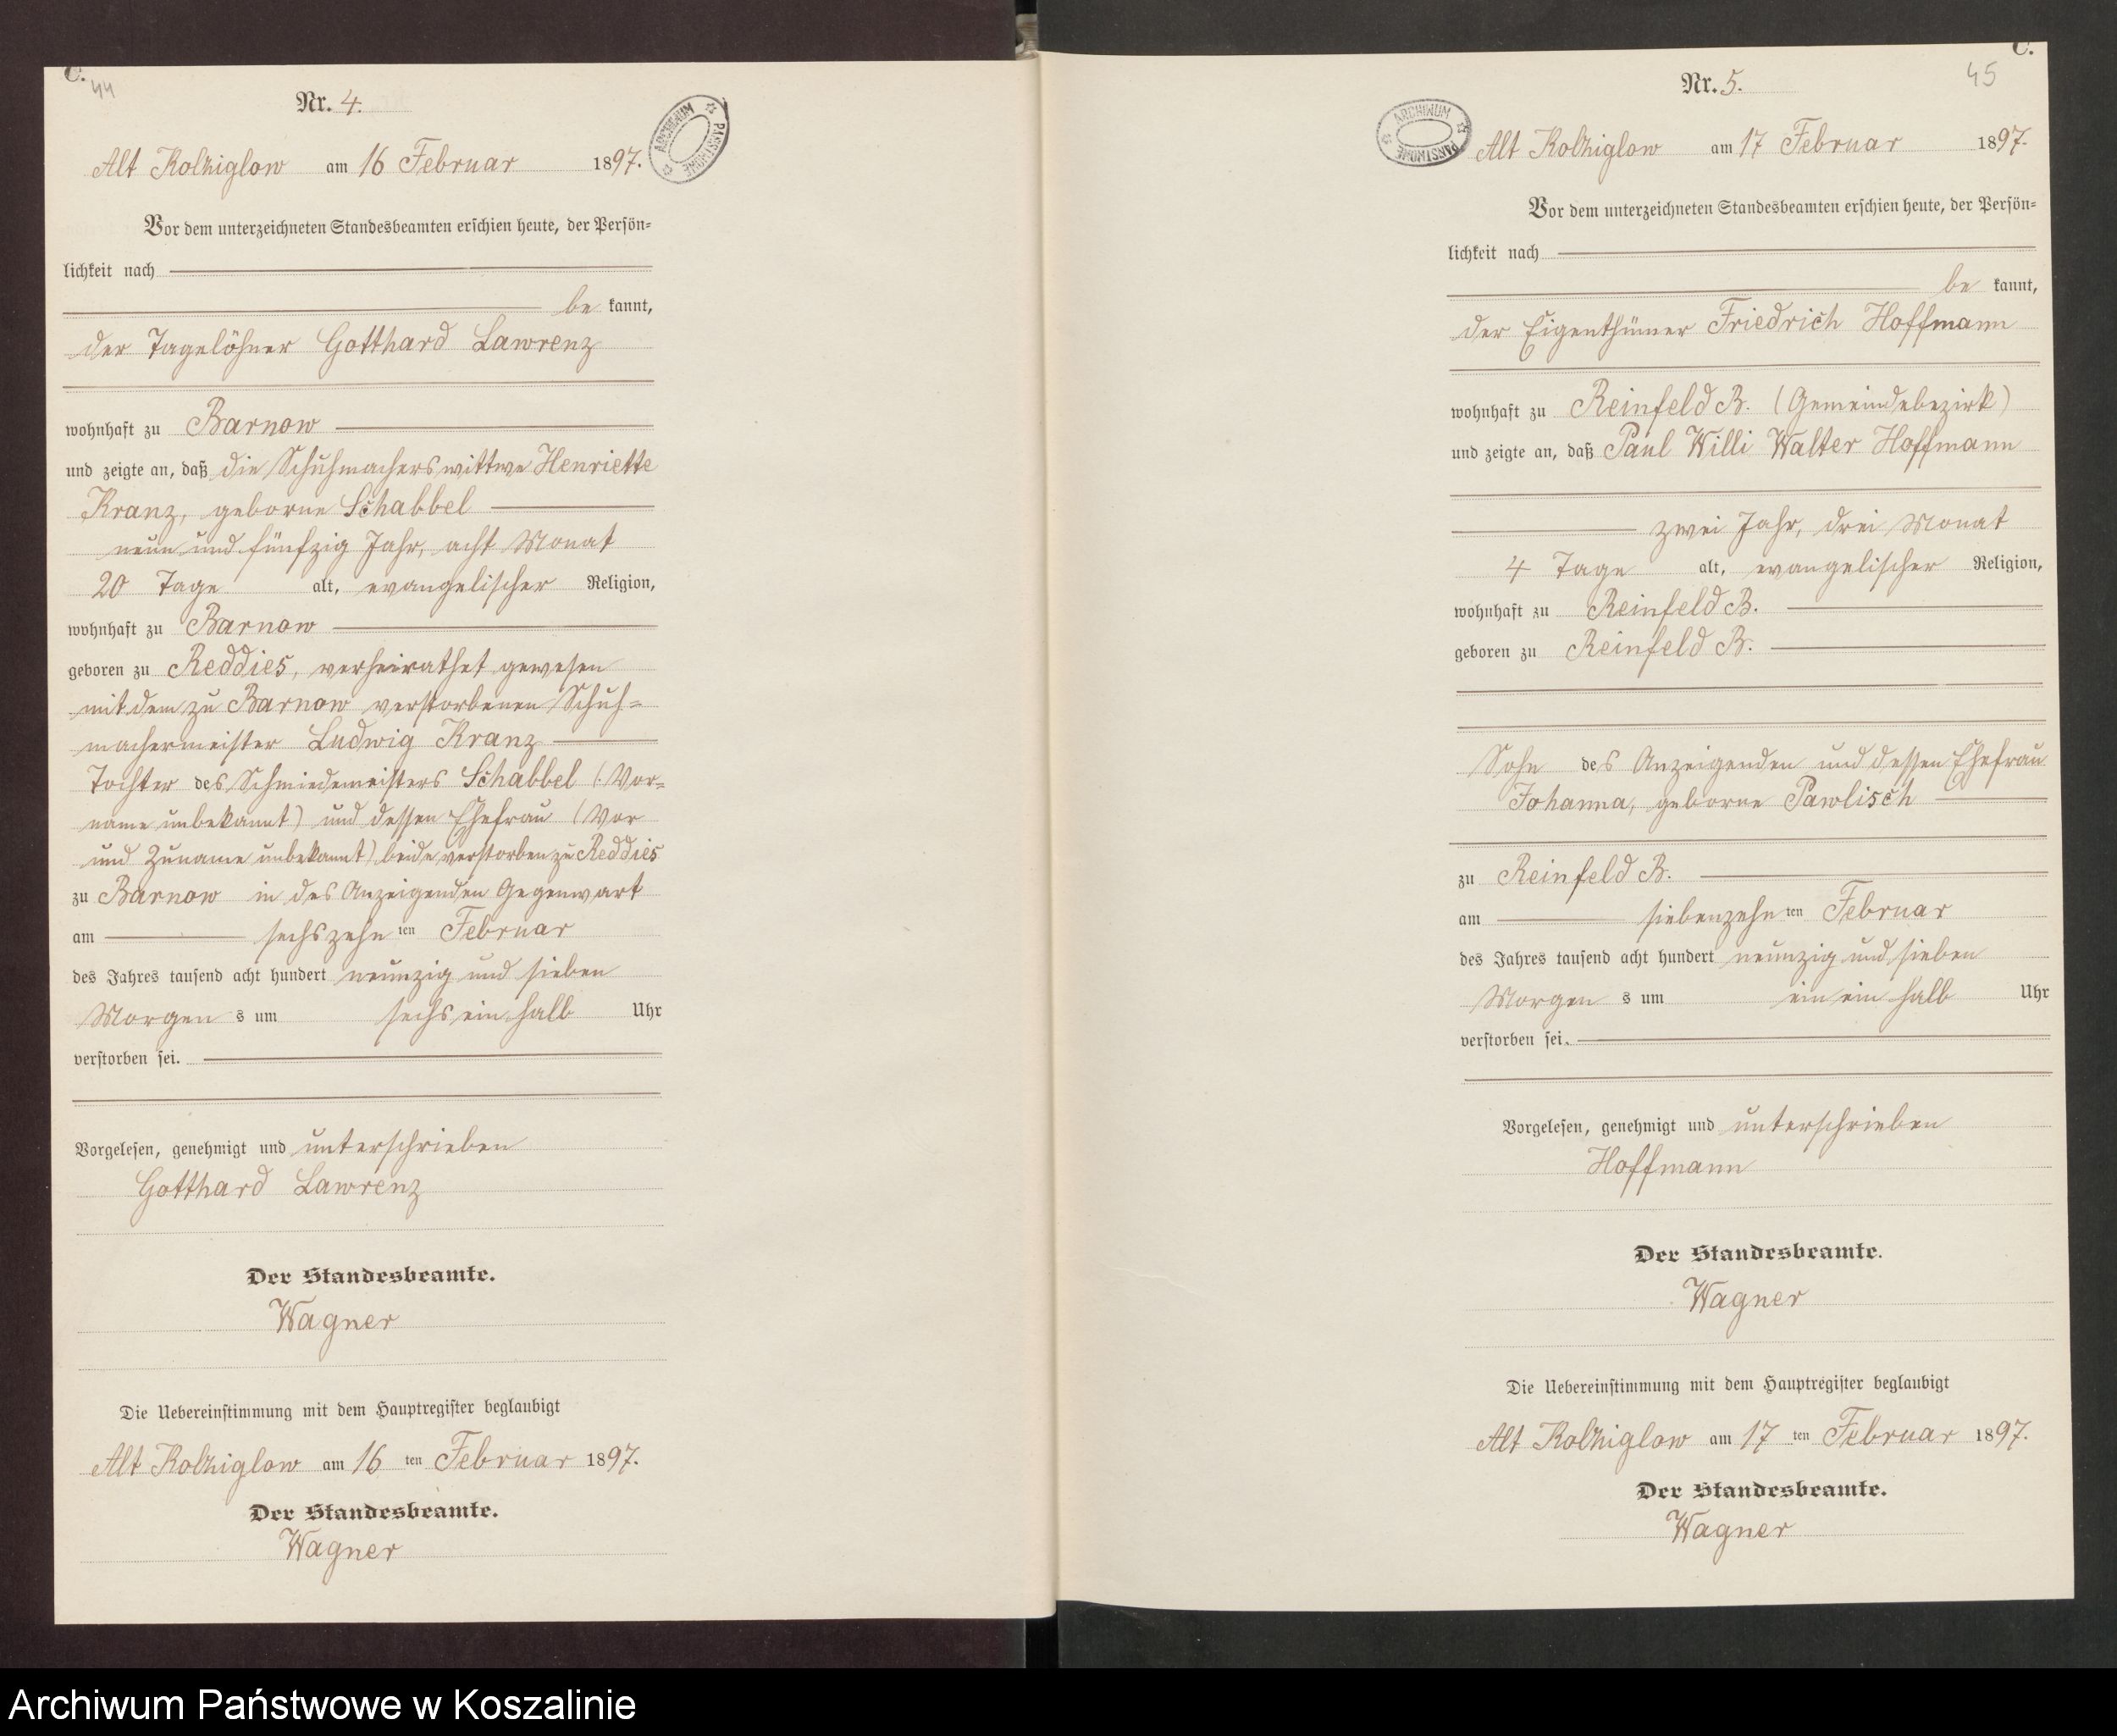 C.
44
Nr. 4.
ARCHIWUM PAŃSTWOWE
Alt Kolziglow am 16 Februar 1897.
Vor dem unterzeichneten Standesbeamten erschien heute, der Persön-
lichkeit nach
be kannt,
der Tagelöhner Gotthard Lawrenz
wohnhaft zu Barnow
und zeigte an, daß die Schuhmacherswittwe Henriette
Kranz, geborne Schabbel
neun und fünfzig Jahr, acht Monat
20 Tage alt, evangelischer Religion,
wohnhaft zu Barnow
geboren zu Reddies, verheirathet gewesen
mit dem zu Barnow verstorbenen Schuh-
machermeister Ludwig Kranz
Tochter des Schmiedemeisters Schabbel (:Vor-
name unbekannt) und dessen Ehefrau (Vor
und Zuname unbekannt) beide verstorben zu Reddies
zu Barnow in des Anzeigenden Gegenwart
am sechszehn ten Februar
des Jahres tausend acht hundert neunzig und sieben
Morgen s um sechs ein halb Uhr
verstorben sei.
Vorgelesen, genehmigt und unterschrieben
Gotthard Lawrenz
Der Standesbeamte.
Wagner
Die Uebereinstimmung mit dem Hauptregister beglaubigt
Alt Kolziglow am 16 ten Februar 1897.
Der Standesbeamte.
Wagner
C.
45
Nr. 5.
ARCHIWUM PAŃSTWOWE
Alt Kolziglow am 17 Februar 1897.
Vor dem unterzeichneten Standesbeamten erschien heute, der Persön-
lichkeit nach
be kannt,
der Eigenthümer Friedrich Hoffmann
wohnhaft zu Reinfeld B. (Gemeindebezirk)
und zeigte an, daß Paul Willi Walter Hoffmann
zwei Jahr, drei Monat
4 Tage alt, evangelischer Religion,
wohnhaft zu Reinfeld B.
geboren zu Reinfeld B.
Sohn des Anzeigenden und dessen Ehefrau
Johanna, geborne Pawlisch
zu Reinfeld B.
am siebenzehn ten Februar
des Jahres tausend acht hundert neunzig und sieben
Morgen s um ein ein halb Uhr
verstorben sei.
Vorgelesen, genehmigt und unterschrieben
Hoffmann
Der Standesbeamte.
Wagner
Die Uebereinstimmung mit dem Hauptregister beglaubigt
Alt Kolziglow am 17 ten Februar 1897.
Der Standesbeamte.
Wagner
Archiwum Państwowe w Koszalinie